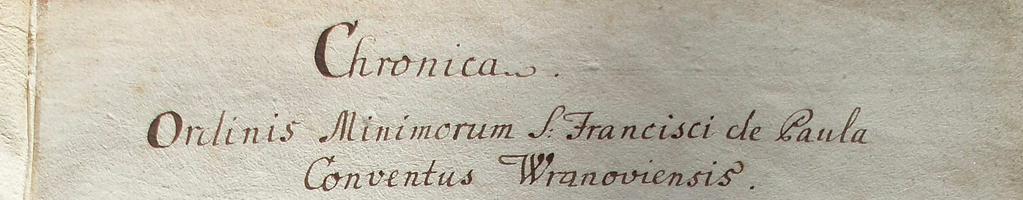 Chronica.
Ordinis Minimorum S: Francisci de Paula
Conventus Wranoviensis.